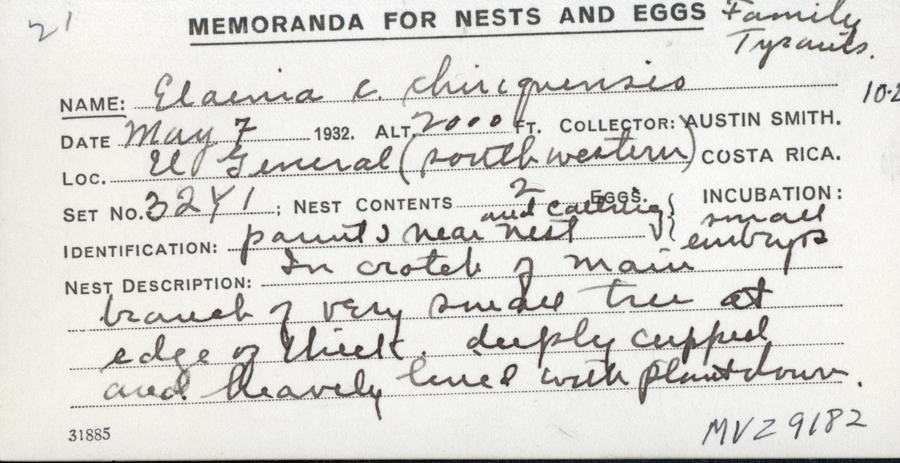 21
MEMORANDA FOR NESTS AND EGGS Family
Tyrants.
NAME: Elaenia c. chiriquensis
10-2
DATE May 7 1932. ALT. 2000 FT. COLLECTOR: AUSTIN SMITH.
LOC. El General (southwestern) COSTA RICA.
SET NO. 32Y1; NEST CONTENTS 2 EGGS. INCUBATION:
and calling } small
IDENTIFICATION: parents near nest embryos
NEST DESCRIPTION: In crotch of main
branch of very small tree at
edge of thick. deeply cupped
and heavily lined with plant down.
31885
MVZ 9182